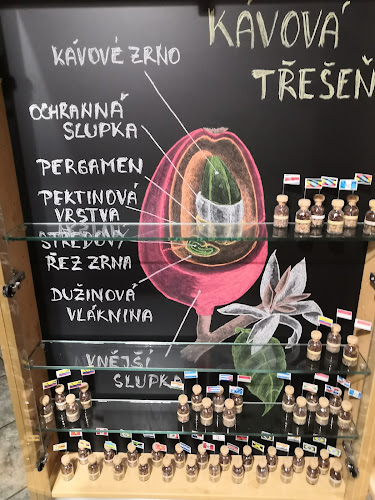 KÁVOVÁ
TŘEŠEŇ
KÁVOVÉ ZRNO
OCHRANNÁ
SLUPKA
PERGAMEN
PEKTINOVÁ
VRSTVA
STŘEDOVÝ
ŘEZ ZRNA
DUŽINOVÁ
VLÁKNINA
VNĚJŠÍ
SLUPKA